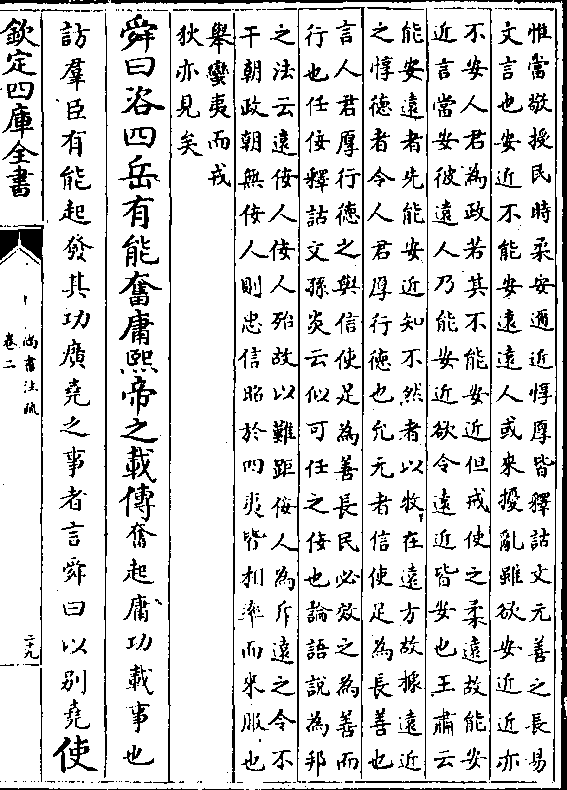 惟當敬授民時柔安邇近惇厚皆釋詁文元善之長易
文言也安近不能安遠遠人或來擾亂雖欲安近近亦
不安人君為政若其不能安近但戒使之柔遠故能安
近言當安彼遠人乃能安近欲令遠近皆安也王肅云
能安遠者先能安近知不然者以牧在遠方故據遠近
之惇德者令人君厚行德也允元者信使足為長善也
言人君厚行德之與信使足為善長民必效之為善而
行也任佞釋詁文孫炎云似可任之佞也論語說為邦
之法云遠佞人佞人殆故以難距佞人為斥遠之令不
干朝政朝無佞人則忠信昭於四夷皆相率而來服也
舉蠻夷而戎
狄亦見矣
舜曰咨四岳有能奮庸熙帝之載傳奮起庸功載事也
訪羣臣有能起發其功廣堯之事者言舜曰以別堯使
欽定四庫全書
尚書注疏
卷二
二九